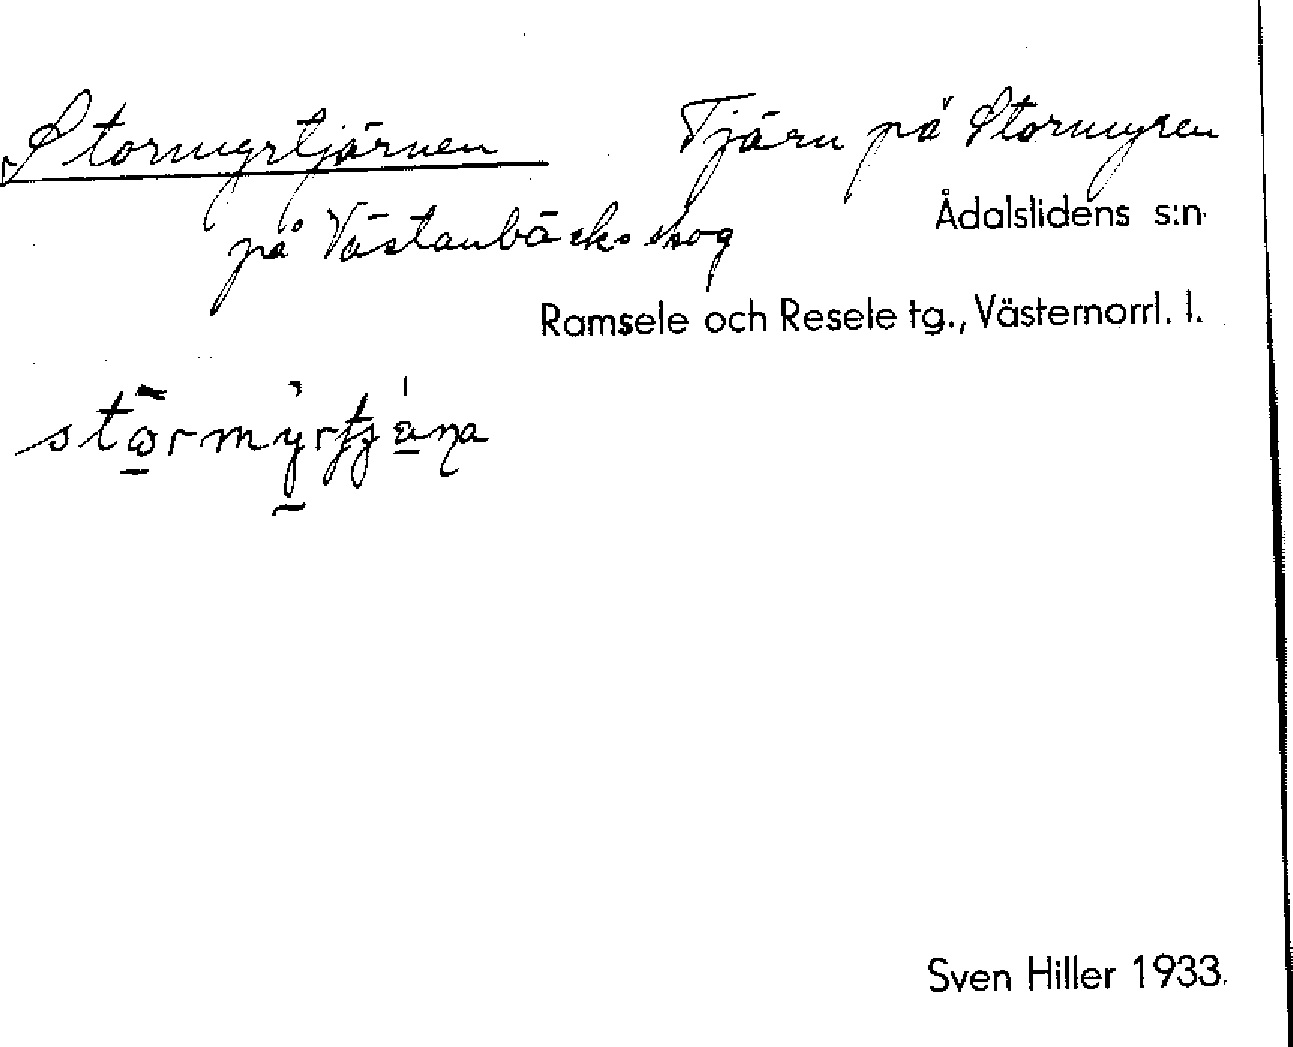 Stormyrtjärnen Tjärn på Stormyren
Ådalslidens s:n
på Västanbäcks skog
Ramsele och Resele tg., Västernorrl. l.
Sven Hiller 1933.